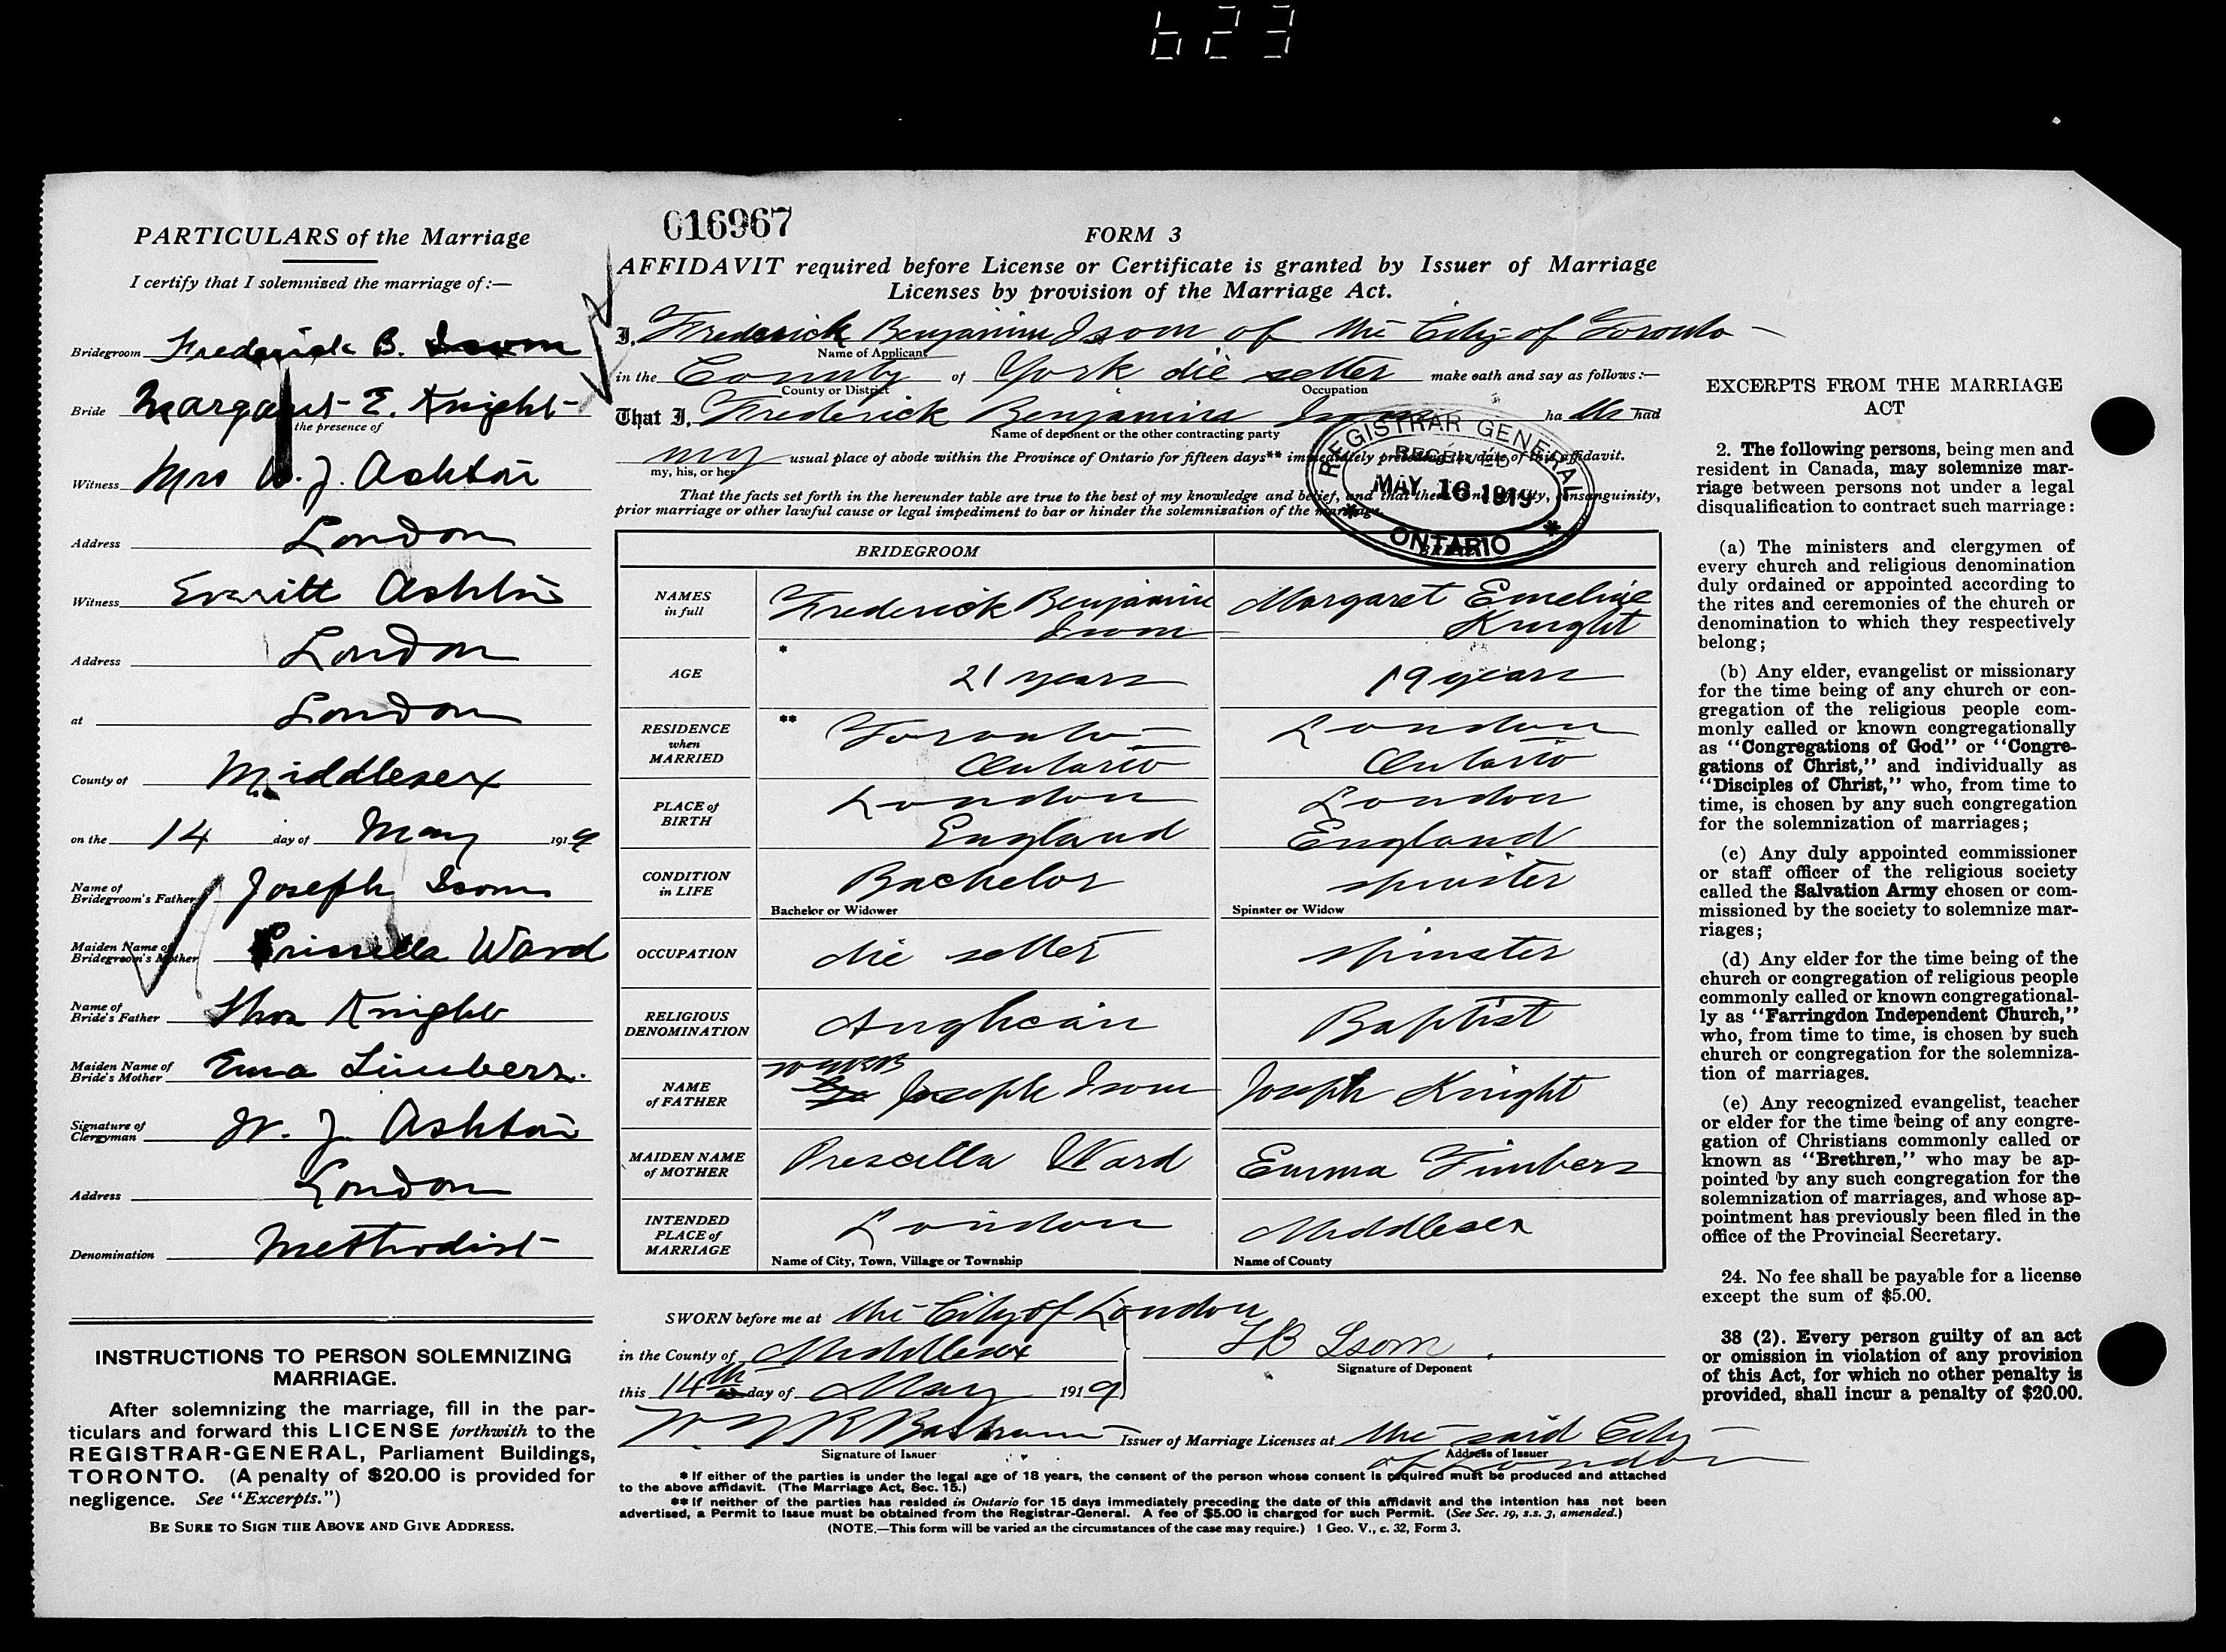 623
PARTICULARS of the Marriage
I certify that I solemnized the marriage of:—
Bridegroom Frederick B. Isom
Bride Margaret E. Knight
the presence of
Witness Mrs W. J. Ashton
Address London
Witness Everitt Ashton
Address London
at London
County of Middlesex
on the 14 day of May 1919
Name of
Bridegroom's Father Joseph Isom
Maiden Name of
Bridegroom's Mother Priscella Ward
Name of
Bride's Father Thos Knight
Maiden Name of
Bride's Mother Ema Limbers.
Signature of
Clergyman W. J. Ashton
Address London
Denomination Methodist
INSTRUCTIONS TO PERSON SOLEMNIZING
MARRIAGE.
After solemnizing the marriage, fill in the par-
ticulars and forward this LICENSE forthwith to the
REGISTRAR-GENERAL, Parliament Buildings,
TORONTO. (A penalty of $20.00 is provided for
negligence. See "Excerpts.")
BE SURE TO SIGN THE ABOVE AND GIVE ADDRESS.
016967
FORM 3
AFFIDAVIT required before License or Certificate is granted by Issuer of Marriage
Licenses by provision of the Marriage Act.
I, Frederick Benjamin Isom of the City of Toronto
Name of Applicant
in the County of York die setter make oath and say as follows:—
County or District Occupation
That I, Frederick Benjamin Isom ha had
Name of deponent or the other contracting party
my usual place of abode within the Province of Ontario for fifteen days** immediately preceding the date of this affidavit.
my, his, or her
That the facts set forth in the hereunder table are true to the best of my knowledge and belief, and that there is no affinity, consanguinity,
prior marriage or other lawful cause or legal impediment to bar or hinder the solemnization of the marriage.
REGISTRAR GENERAL
RECEIVED
MAY 16 1919
* ONTARIO *
BRIDEGROOM BRIDE
NAMES
in full
Frederick Benjamin
Isom
Margaret Emeline
Knight
AGE
* 21 years
19 years
RESIDENCE
when
MARRIED
** Toronto
Ontario
London
Ontario
PLACE of
BIRTH
London
England
London
England
CONDITION
in LIFE
Bachelor
Bachelor or Widower
spinster
Spinster or Widow
OCCUPATION
die setter
spinster
RELIGIOUS
DENOMINATION
Anglican
Baptist
NAME
of FATHER
Joseph Isom
Joseph Knight
MAIDEN NAME
of MOTHER
Prescella Ward
Emma Timbers
INTENDED
PLACE of
MARRIAGE
London
Name of City, Town, Village or Township
Middlesex
Name of County
SWORN before me at the City of London
in the County of Middlesex
this 14th day of May 1919
FB Isom
Signature of Deponent
Signature of Issuer
Issuer of Marriage Licenses at the said City
of London
Address of Issuer
* If either of the parties is under the legal age of 18 years, the consent of the person whose consent is required must be produced and attached
to the above affidavit. (The Marriage Act, Sec. 15.)
** If neither of the parties has resided in Ontario for 15 days immediately preceding the date of this affidavit and the intention has not been
advertised, a Permit to Issue must be obtained from the Registrar-General. A fee of $5.00 is charged for such Permit. (See Sec. 19, s.s. 3, amended.)
(NOTE.—This form will be varied as the circumstances of the case may require.) 1 Geo. V., c. 32, Form 3.
EXCERPTS FROM THE MARRIAGE
ACT
2. The following persons, being men and
resident in Canada, may solemnize mar-
riage between persons not under a legal
disqualification to contract such marriage:
(a) The ministers and clergymen of
every church and religious denomination
duly ordained or appointed according to
the rites and ceremonies of the church or
denomination to which they respectively
belong;
(b) Any elder, evangelist or missionary
for the time being of any church or con-
gregation of the religious people com-
monly called or known congregationally
as "Congregations of God" or "Congre-
gations of Christ," and individually as
"Disciples of Christ," who, from time to
time, is chosen by any such congregation
for the solemnization of marriages;
(c) Any duly appointed commissioner
or staff officer of the religious society
called the Salvation Army chosen or com-
missioned by the society to solemnize mar-
riages;
(d) Any elder for the time being of the
church or congregation of religious people
commonly called or known congregational-
ly as "Farringdon Independent Church,"
who, from time to time, is chosen by such
church or congregation for the solemniza-
tion of marriages.
(e) Any recognized evangelist, teacher
or elder for the time being of any congre-
gation of Christians commonly called or
known as "Brethren," who may be ap-
pointed by any such congregation for the
solemnization of marriages, and whose ap-
pointment has previously been filed in the
office of the Provincial Secretary.
24. No fee shall be payable for a license
except the sum of $5.00.
38 (2). Every person guilty of an act
or omission in violation of any provision
of this Act, for which no other penalty is
provided, shall incur a penalty of $20.00.